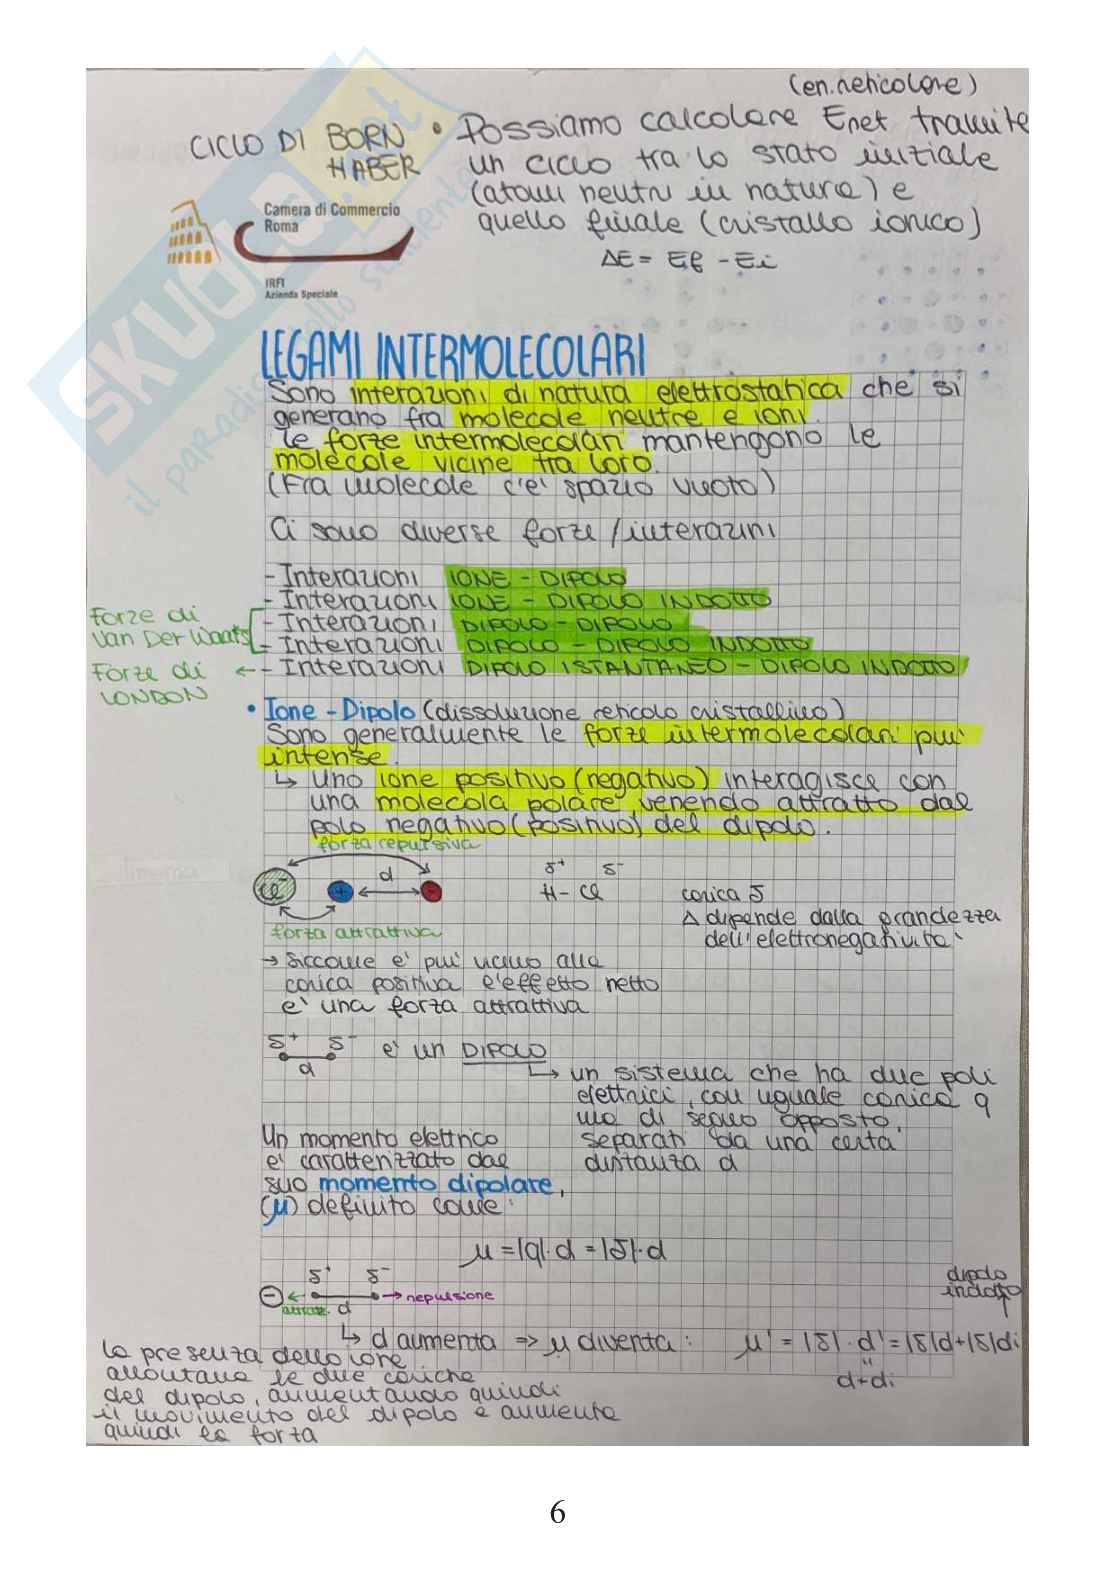 (en.reticolare)
CICLO DI BORN HABER
• Possiamo calcolare Eret tramite
un ciclo tra lo stato iniziale
(atomi neutri in natura) e
quello finale (cristallo ionico)
ΔE = Ef - Ei
Camera di Commercio
Roma
IRFI
Azienda Speciale
SKUOLA.net
il paradiso dello studente
LEGAMI INTERMOLECOLARI
Sono interazioni di natura elettrostatica che si
generano fra molecole neutre e ioni.
le forze intermolecolari mantengono le
molecole vicine tra loro.
(Fra molecole c'è spazio vuoto)
Ci sono diverse forze/interazini
- Interazioni IONE - DIPOLO
- Interazioni IONE - DIPOLO INDOTTO
- Interazioni DIPOLO - DIPOLO
- Interazioni DIPOLO - DIPOLO INDOTTO
← - Interazioni DIPOLO ISTANTANEO - DIPOLO INDOTTO
Forze di
Van Der Waals
Forze di
LONDON
• Ione - Dipolo (dissoluzione reticolo cristallino)
Sono generalmente le forze intermolecolari piu'
intense.
↳ Uno ione positivo (negativo) interagisce con
una molecola polare venendo attratto dal
polo negativo (positivo) del dipolo.
forza repulsiva
Cl⁻ + d -
forza attrattiva
δ⁺ δ⁻
H - Cl
carica δ
Δ dipende dalla grandezza
dell'elettronegativita'
→ Siccome e' piu' vicino alla
carica positiva l'effetto netto
e' una forza attrattiva
δ⁺ δ⁻ e' un DIPOLO
d
↳ un sistema che ha due poli
elettrici, con uguale carica q
ma di segno opposto,
separati da una certa
distanza d
Un momento elettrico
e' caratterizzato dal
suo momento dipolare,
(μ) definito come:
μ = |q|· d = |δ|· d
δ⁺ δ⁻
- ← → repulsione
attraz. d
dipolo
indotto
↳ d aumenta => μ diventa: μ' = |δ| · d' = |δ|d + |δ|di
"
d+di
la presenza dello ione
allontana le due cariche
del dipolo, aumentando quindi
il movimento del dipolo e aumenta
quindi la forza
6